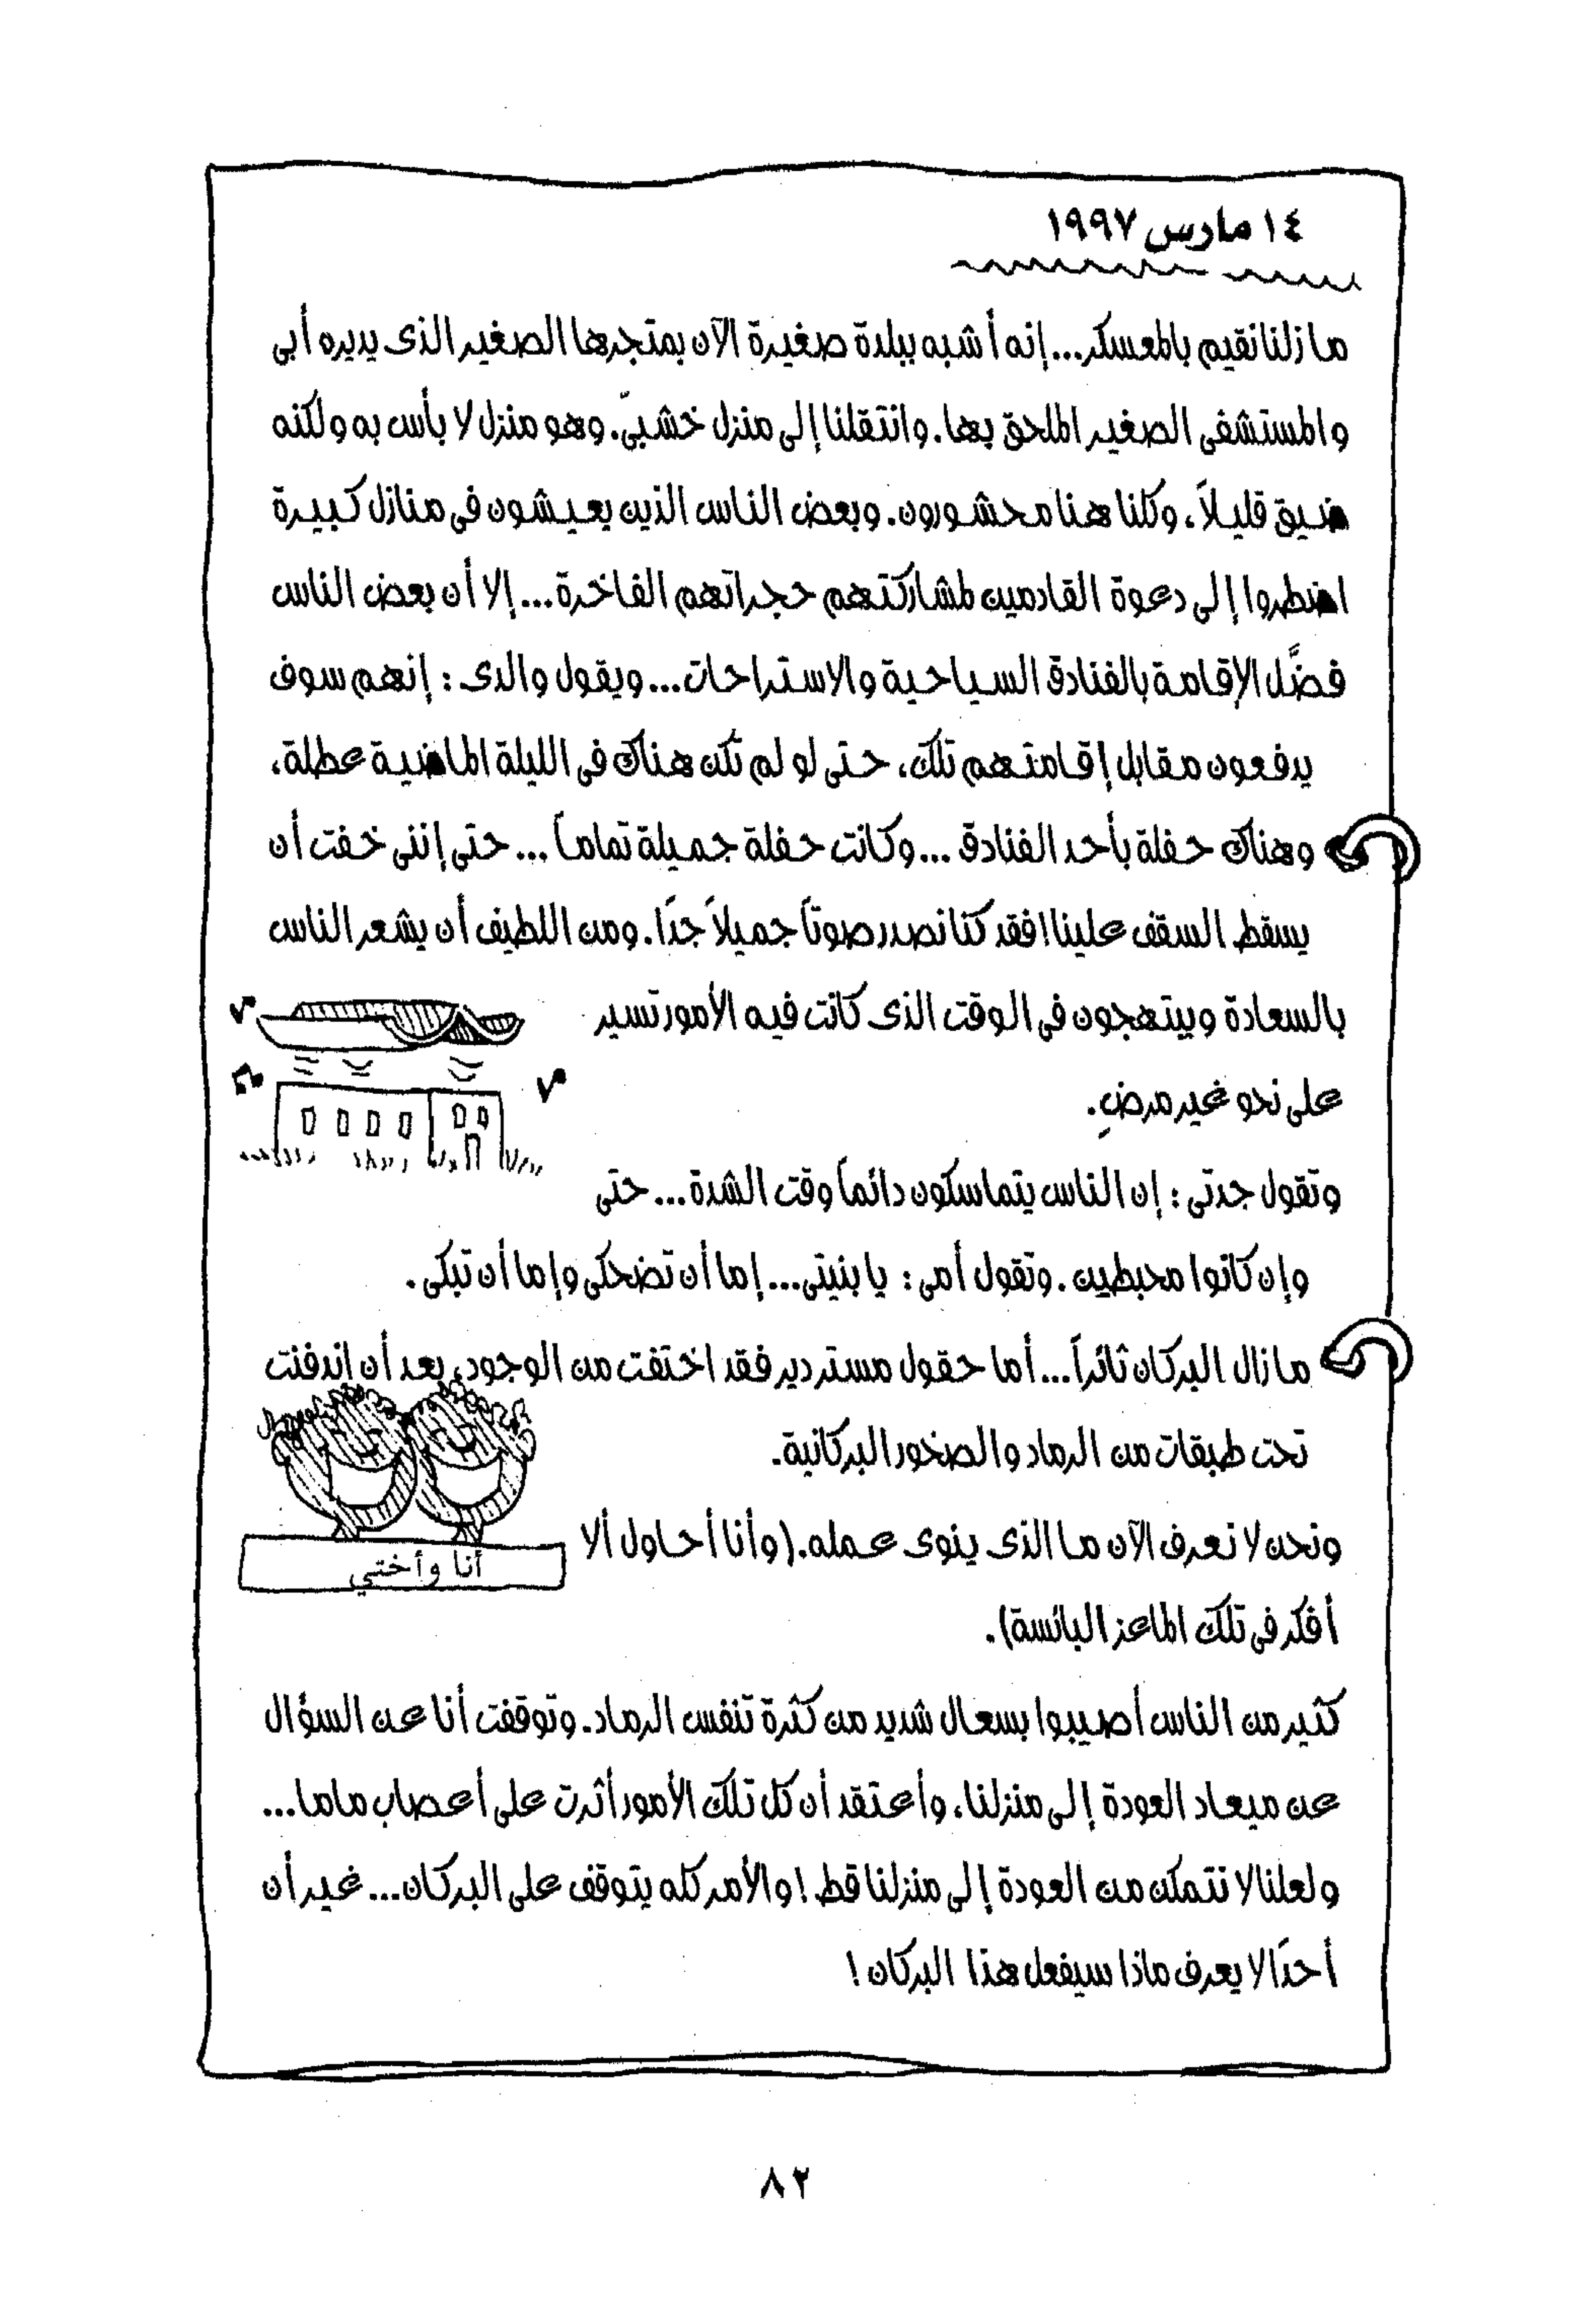 ١٤ مارس ١٩٩٧
ما زلنا نقيم بالمعسكر... إنه أشبه ببلدة صغيرة الآن بمتجرها الصغير الذى يديره أبى
والمستشفى الصغير الملحق بها. وانتقلنا إلى منزل خشبىّ. وهو منزل لا بأس به ولكنه
ضيق قليلاً، وكلنا هنا محشورون. وبعض الناس الذين يعيشون فى منازل كبيرة
اضطروا إلى دعوة القادمين لمشاركتهم حجراتهم الفاخرة... إلا أن بعض الناس
فضَّل الإقامة بالفنادق السياحية والاستراحات... ويقول والدى : إنهم سوف
يدفعون مقابل إقامتهم تلك، حتى لو لم تكن هناك فى الليلة الماضية عطلة،
وهناك حفلة بأحد الفنادق ... وكانت حفلة جميلة تماماً ... حتى إننى خفت أن
يسقط السقف علينا! فقد كنا نصدر صوتاً جميلاً جدًا. ومن اللطيف أن يشعر الناس
بالسعادة ويبتهجون فى الوقت الذى كانت فيه الأمور تسير
على نحو غير مرضٍ.
وتقول جدتى : إن الناس يتماسكون دائماً وقت الشدة ... حتى
وإن كانوا محبطين. وتقول أمى : يا بنيتى... إما أن تضحكى وإما أن تبكى.
ما زال البركان ثائراً... أما حقول مستر دير فقد اختفت من الوجود، بعد أن اندفنت
تحت طبقات من الرماد والصخور البركانية.
ونحن لا نعرف الآن ما الذى ينوى عمله. (وأنا أحاول ألا
أنا وأختي
أفكر فى تلك الماعز البائسة).
كثير من الناس أصيبوا بسعال شديد من كثرة تنفس الرماد. وتوقفت أنا عن السؤال
عن ميعاد العودة إلى منزلنا، وأعتقد أن كل تلك الأمور أثرت على أعصاب ماما...
ولعلنا لا نتمكن من العودة إلى منزلنا قط! والأمر كله يتوقف على البركان... غير أن
أحدًا لا يعرف ماذا سيفعل هذا البركان!
٨٢